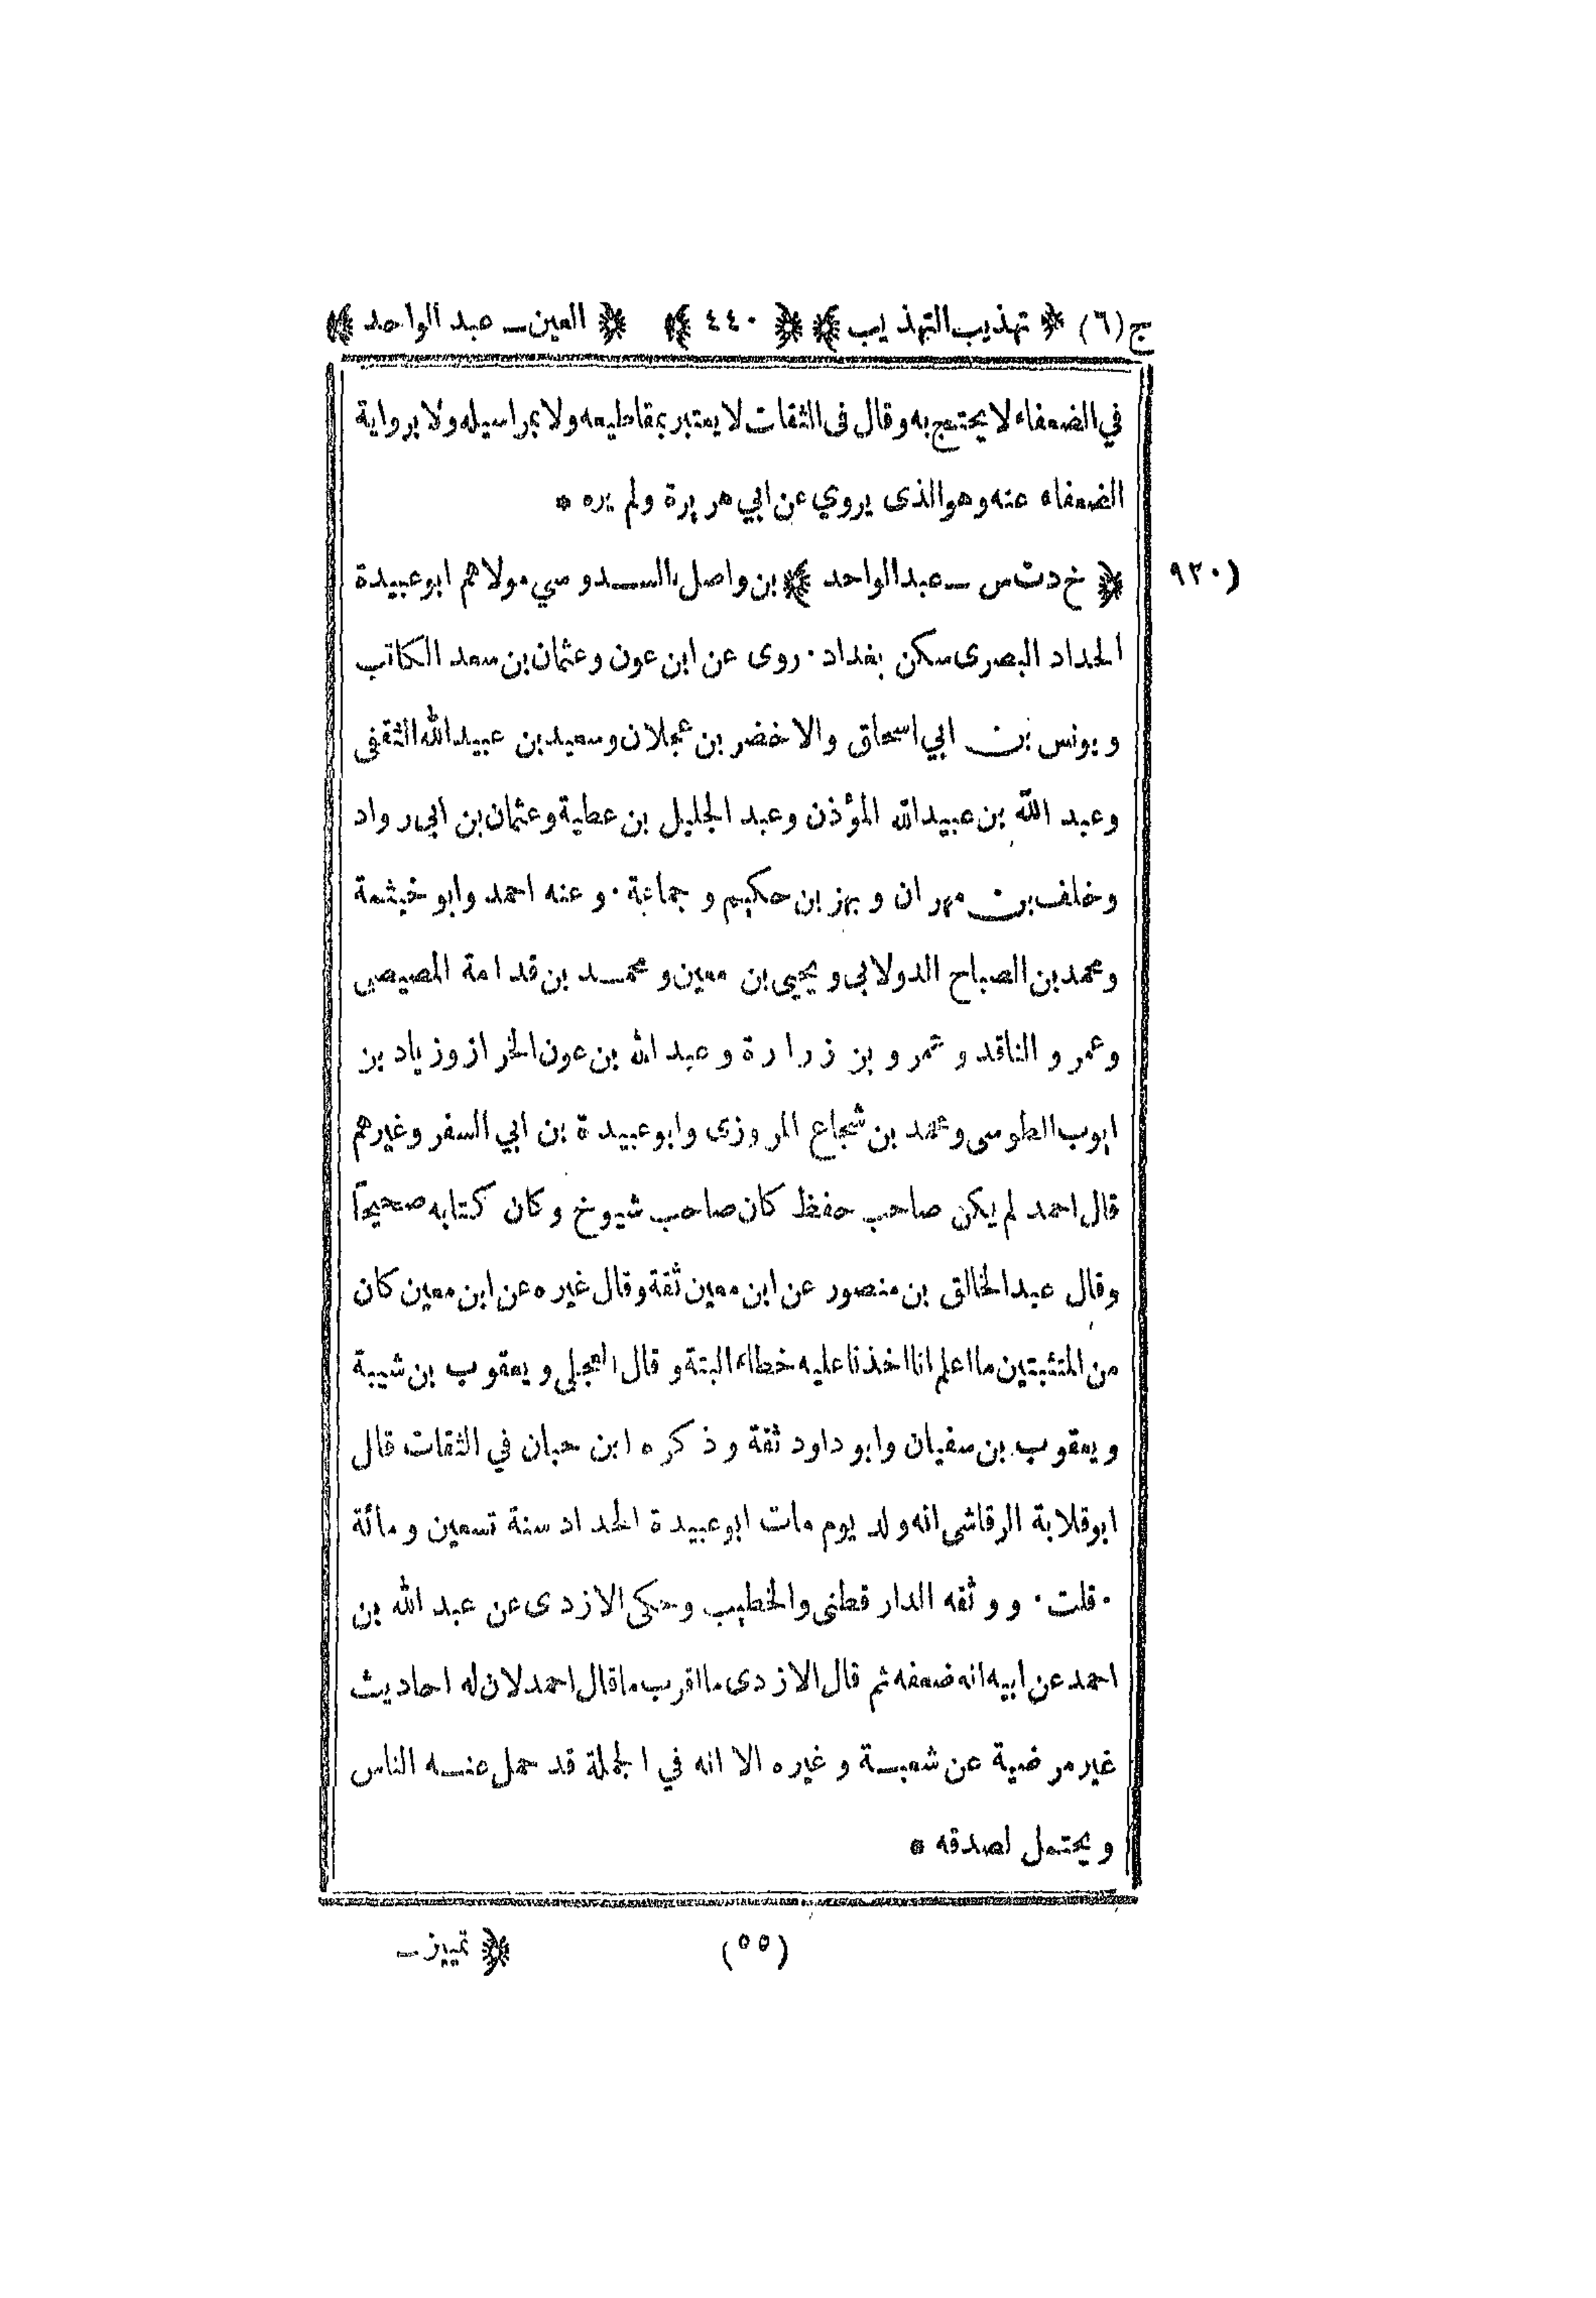 ج (٦) ﴿ تهذيب التهذيب ﴾ ﴿ ٤٤٠ ﴾ ﴿ العين ـ عبد الواحد ﴾
في الضعفاء لا يحتج به وقال في الثقات لا يعتبر بمقاطيعه ولا بمراسيله ولا برواية
الضعفاء عنه وهو الذى يروي عن ابي هريرة ولم يره *
(٩٢٠
﴿ خ د ت س ـ عبد الواحد ﴾ بن واصل السدوسي مولاهم ابو عبيدة
الحداد البصرى سكن بغداد . روى عن ابن عون وعثمان بن سعد الكاتب
ويونس بن ابي اسحاق والاخضر بن عجلان وسعيد بن عبيد الله الثقفى
وعبد الله بن عبيد الله المؤذن وعبد الجليل بن عطية وعثمان بن ابى رواد
وخلف بن مهران وبهز بن حكيم وجماعة . وعنه احمد وابو خيثمة
ومحمد بن الصباح الدولابى ويحيى بن معين ومحمد بن قدامة المصيصى
وعمرو الناقد وعمرو بن زرارة وعبد الله بن عون الخراز وزياد بن
ايوب الطوسى ومحمد بن شجاع المروزى وابو عبيدة بن ابي السفر وغيرهم
قال احمد لم يكن صاحب حفظ كان صاحب شيوخ وكان كتابه صحيحاً
وقال عبد الخالق بن منصور عن ابن معين ثقة وقال غيره عن ابن معين كان
من المتثبتين ما اعلم انا اخذنا عليه خطاء البتة وقال العجلي ويعقوب بن شيبة
ويعقوب بن سفيان وابو داود ثقة وذكره ابن حبان في الثقات قال
ابو قلابة الرقاشى انه ولد يوم مات ابو عبيدة الحداد سنة تسعين ومائة
. قلت . ووثقه الدار قطنى والخطيب وحكى الازدى عن عبد الله بن
احمد عن ابيه انه ضعفه ثم قال الازدى ما اقرب ما قال احمد لان له احاديث
غير مرضية عن شعبة وغيره الا انه في الجملة قد حمل عنه الناس
ويحتمل لصدقه *
(٥٥) ﴿ تمييز ـ